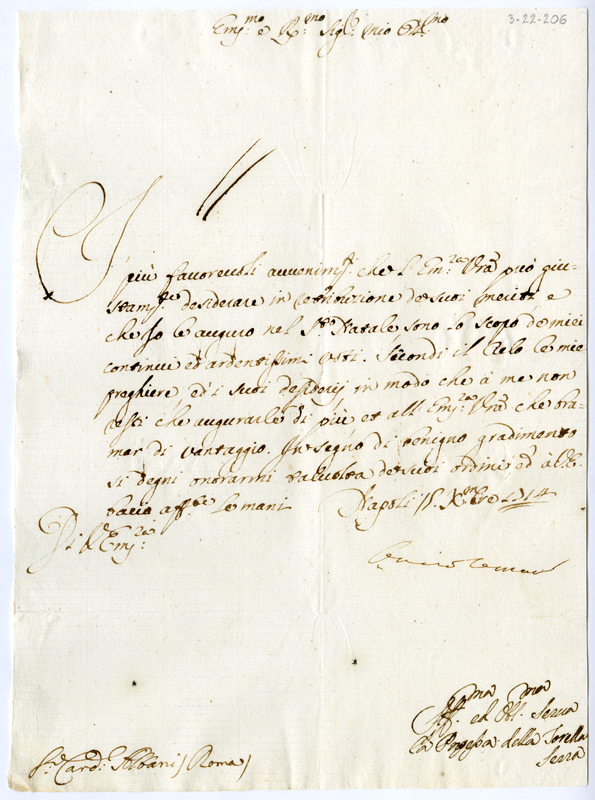 3-22-206
Em.mo e R.mo Sig.r mio Oss.mo
I più favorevoli avvenim.ti che l'Em.za Vra può giu-
stam.te desiderare in retribuzione de suoi meriti e
che Io le auguro nel S.to Natale sono lo scopo de miei
continui ed ardentissimi voti. Secondi il Cielo le mie
preghiere, ed i suoi desiderij in modo che à me non
resti che augurarle di più et all'Em.za Vra che bra-
mar di vantaggio. In segno di benigno gradimento
si degni onorarmi talvolta de suoi ordini ed à V.E.
bacio aff.te le mani Napoli 15 Xbre 1714
Di V.Em.za
Aff.ma ed Obl.ma Serva
la Pnpessa della Torella
Serra
S.r Card. Albani (Roma)